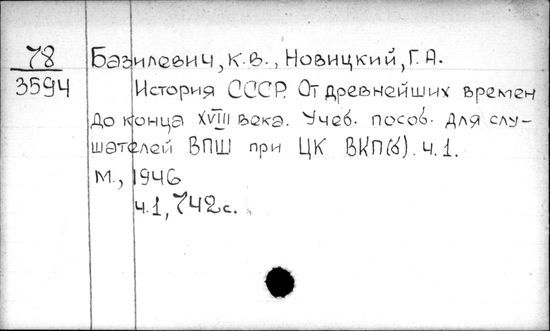 78 Базилевич, К.В., Новицкий, Г.А.
3594 История СССР. От древнейших времен
до конца XVIII века. Учеб. пособ. для слу-
шателей ВПШ при ЦК ВКП(б). ч.1.
М., 1946
ч.1, 742с.